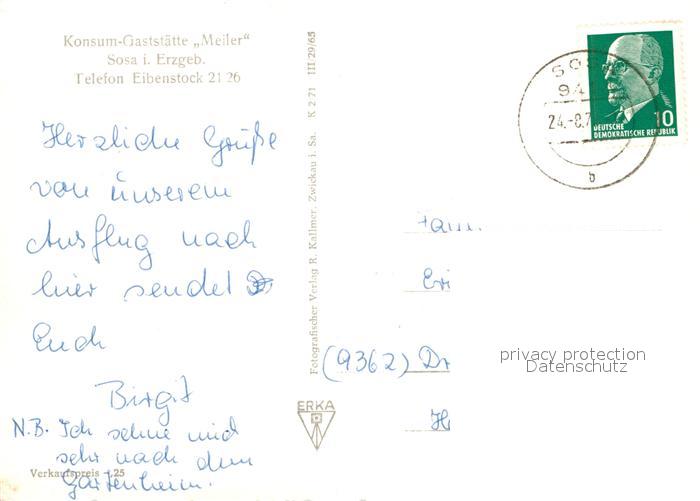 Konsum-Gaststätte „Meiler"
Sosa i. Erzgeb.
Telefon Eibenstock 21 26
Herzliche Grüße
von unserem
Ausflug nach
hier sendet
Euch
Birgit
N.B. Ich sehne mich
sehr nach dem
Gartenheim.
Verkaufspreis -,25
Fotografischer Verlag R. Kallmer, Zwickau i. Sa. K 2 71 III/29/65
ERKA
SOS
94
24.-8.7
b
10
DEUTSCHE
DEMOKRATISCHE REPUBLIK
Fam.
Eri
(9362) Dr
H
privacy protection
Datenschutz